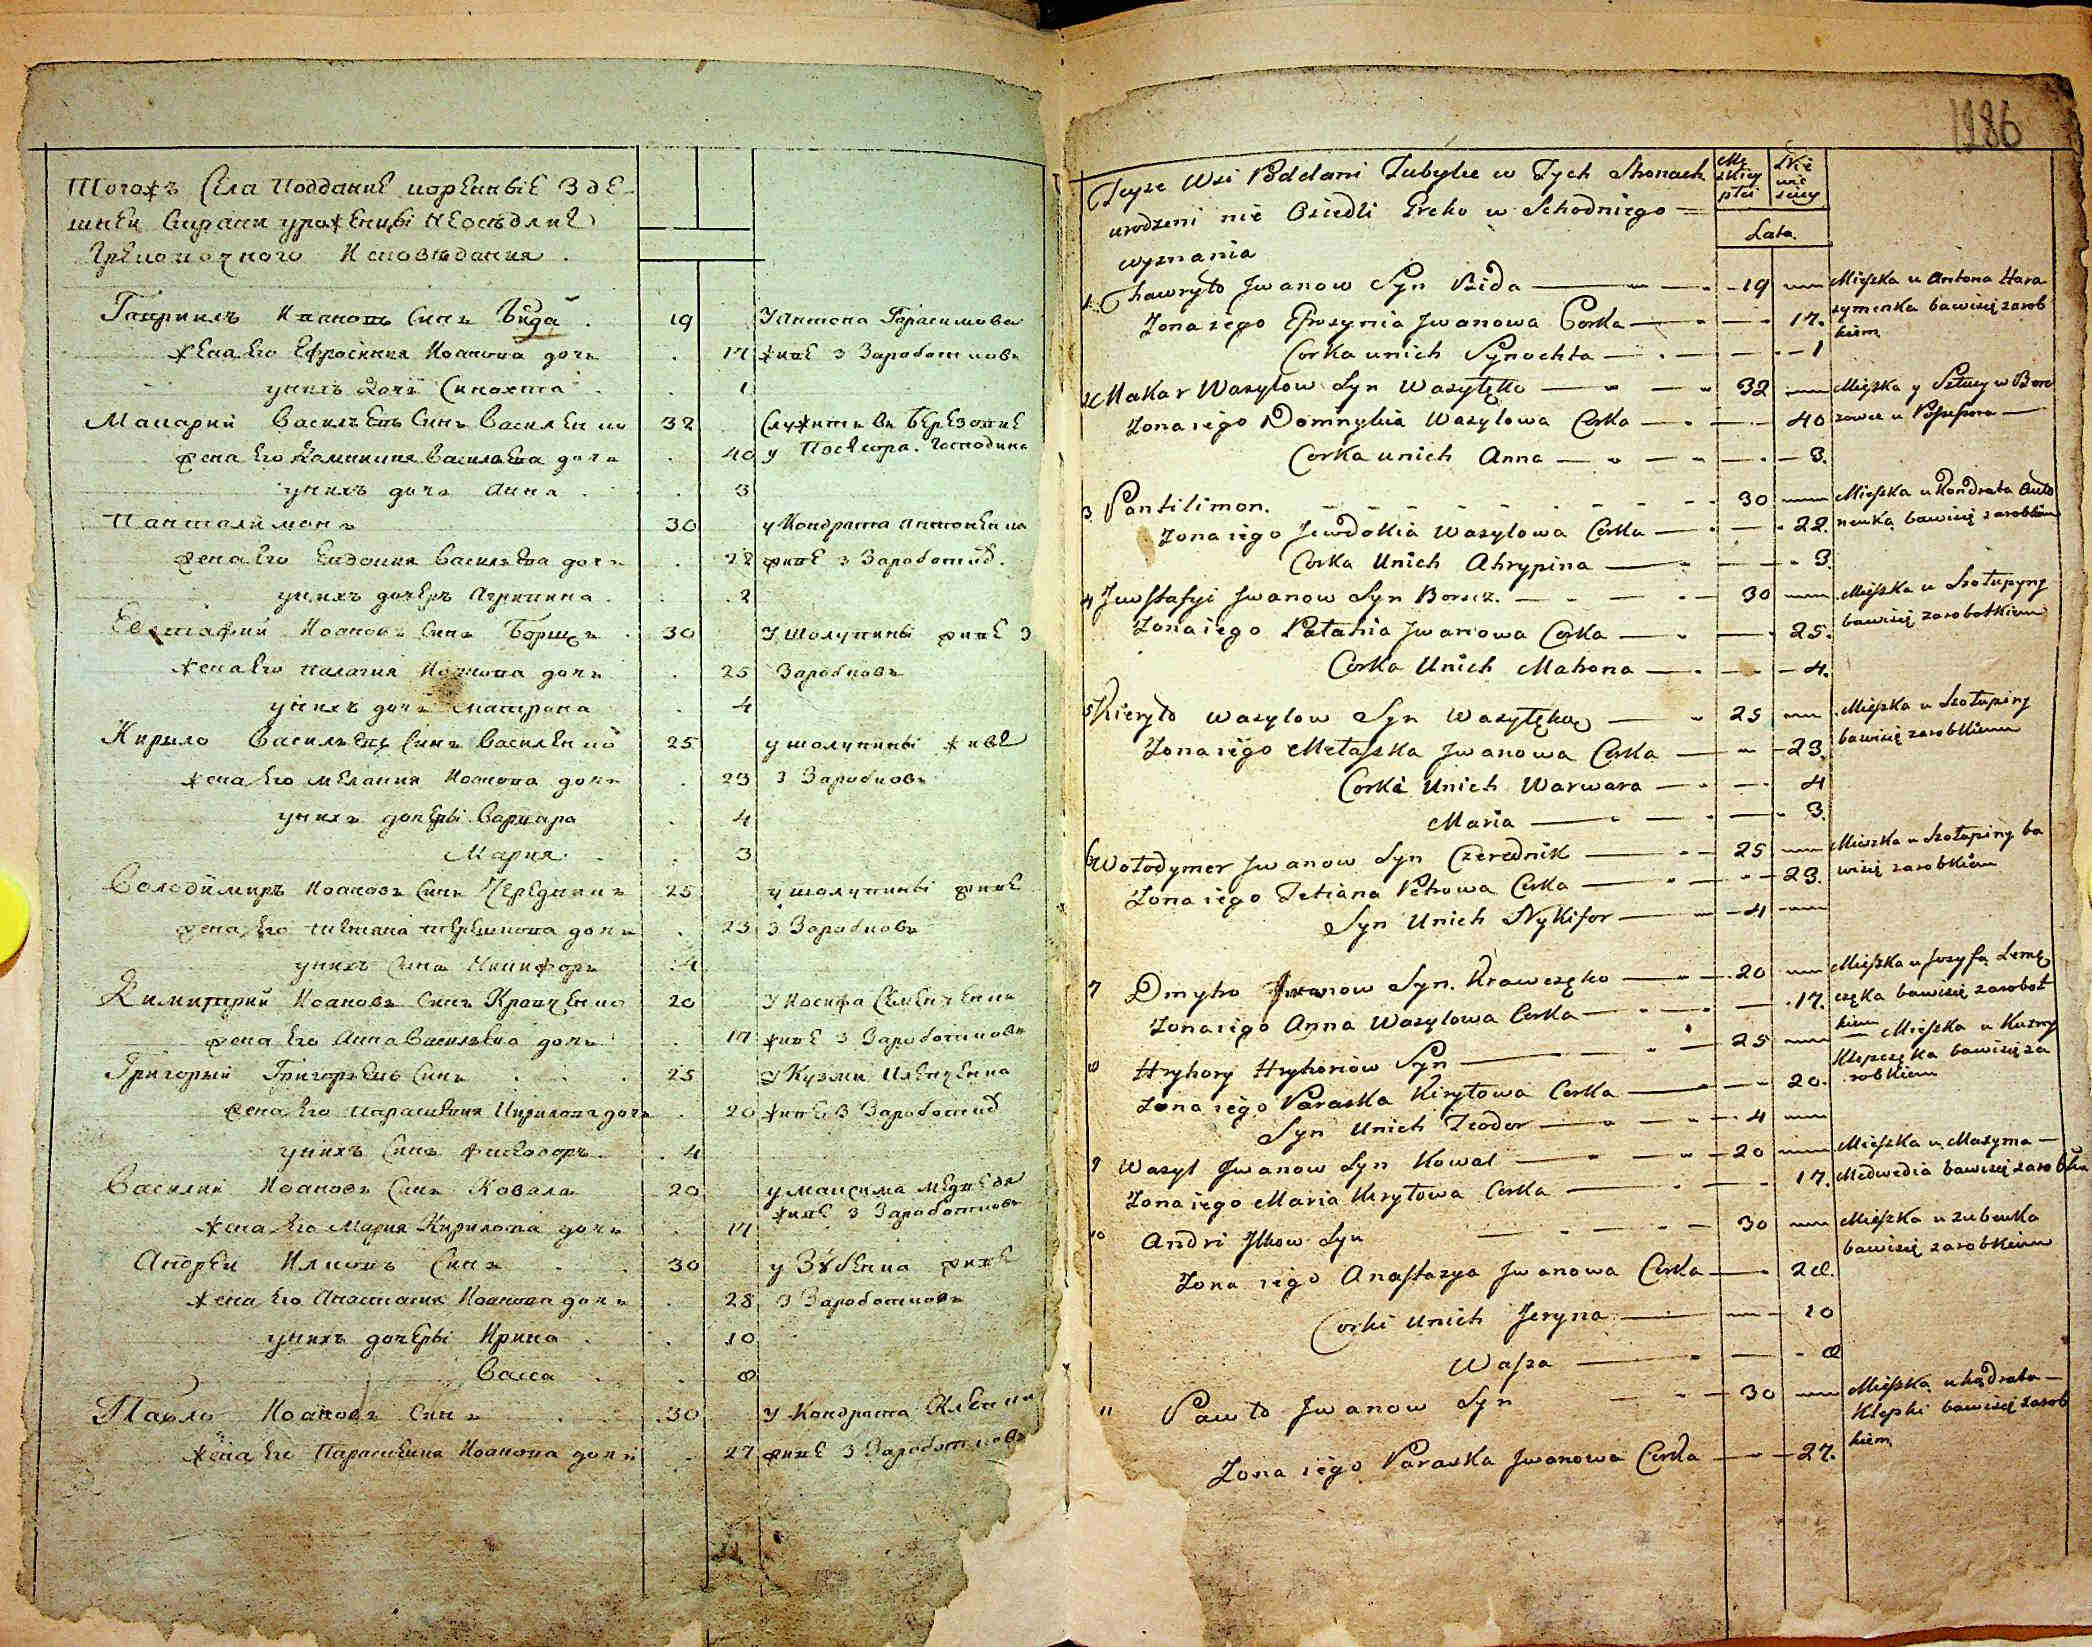 Тогожъ Села Подданніе коренніе Здѣ-
шней Страни урожениі Неосѣдліе
Грековосточного Исповѣданія.
Гавриилъ Ивановъ Синъ Бѣда . 19 У Антона Гарасименка
жена Его Ефросинія Иоанова дочь . 17 живе З Заработковъ
у нихъ дочь Синохта . . 1
Макарий Василѣевъ Синъ Василенко 32 Служитъ въ Березовце
жена Его Домникия Василѣева дочь . 40 у Посесора Господина
у нихъ доче Анна . . 3
Пантелимонъ 30 у Кондрата Антоненка
жена Его Евдокия Василѣева дочь . 22 живе з Заработкѵ.
у нихъ дочеръ Агрипина . . 2
Евстафий Иоановъ Синъ Борщъ . 30 У Шолупини живе З
жена Его Палагия Иоанова дочь . 25 Заробковъ
у нихъ дочь Матрона . 4
Кирило Василѣевъ Синъ Василенко 25 у шолупини живе
жена Его Мелания Иоанова дочь . 23 З Заробковъ
у нихъ дочери Варвара . 4
Мария . . 3
Володимиръ Иоановъ Синъ Чередникъ 25 у шолупини живе
жена Его Тетиана Петрова дочь . 23 з Заробковъ
у нихъ Синъ Никифоръ .4
Димитрий Иоановъ Синъ Кравченко 20 У Иосифа Семенченка
жена Его Анна Василѣева дочь . 17 живе З Заработковъ
Григорый Григорѣевъ Синъ . . . 25 У Кузми Клепченка
жена Его Параскевия Кирилова дочь . 20 живе З Заработкѵ
у нихъ Синъ Феодоръ . . 4
Василий Иоановъ Синъ Коваль 20 у Максима Медведя
живе З Заработковъ
жена Его Мария Кирилова дочь . 17
Андрей Илковъ Синъ . . 30 у Зубенка живе
жена Его Анастасия Иоанова дочь . 28 З Заработковъ
у нихъ дочери Ирина . . 10
Васса . . 8
Павло Иоановъ Синъ . .30 У Кондрата Клепки
жена Его Параскевия Иоанова дочь . 27 живе З Заработковъ
1286
Teyze Wsi Poddani Tubylce w Tych Stronach
urodzeni nie Osiedli Greko w Schodniego
wyznania
Męzkiey płci Nie wie sciey
Lata
1. Chawryło Jwanow Syn Bida 19 Mięszka u Antona Hara
symenka bawisię zarob
kiem
Zona iego Efrozynia Jwanowa Corka 17.
Corka unich Synochta 1
2 Makar Wasylow Syn Wasylęko 32 Mięszka y Służy w Bere
zowce u Possesora
Zona iego Domnykia Wasylowa Corka 40
Corka unich Anna 3.
3 Pantilimon. 30 Mieszka u Kondrata Anto
nenka bawisię zarobkiem
Zona iego Jewdokia Wasylowa Corka 22.
Corka Unich Ahrypina 3.
4 Jewstafyi Jwanow Syn Borszcz. 30 Mieszka u Szołupyny
bawisię zarobotkiem
Zona iego Pałahia Jwanowa Corka 25.
Corka Unich Matrona 4.
5 Kieryło Wasylow Syn Wasylęko 25 Mięszka u Szołupiny
bawisię zarobkiem
Zona iego Metaszka Jwanowa Corka 23.
Corki Unich Warwara 4
Maria 3.
6 Wołodymer Jwanow Syn Czerednik 25 Mieszka u Szołupiny ba
wisię zarobkiem
Zona iego Tetiana Petrowa Corka 23.
Syn Unich Nykifor 4
7 Dmytro Jwanow Syn. Krawczęko 20 Mięszka u Jozyfa Semę
częka bawisię zarobot
kiem
Zona iego Anna Wasylowa Corka 17.
8 Hryhory Hryhoriow Syn 25 Mięszka u Kuzmy
Klepczęka bawisię za
robkiem
Zona iego Paraska Kiryłowa Corka 20.
Syn Unich Teodor 4
9 Wasyl Jwanow Syn Kowal 20 Mięszka u Maxyma
Medwedia bawisię zarobkiem
Zona iego Maria Kiryłowa Corka 17.
10 Andri Jlkow Syn 30 Mięszka u Zubenka
bawisię zarobkiem
Zona iego Anastazya Jwanowa Corka 28.
Corki Unich Jeryna 10
Wassa 8
11 Pawło Jwanow Syn 30 Mięszka u Kądrata
Klepki bawisię zarob
kiem
Zona iego Paraska Jwanowa Corka 27.